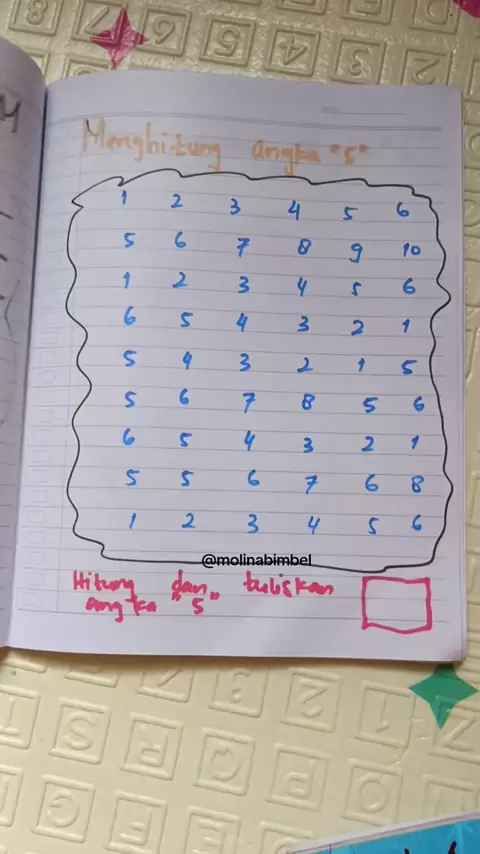 Menghitung angka "5"
1 2 3 4 5 6
5 6 7 8 9 10
1 2 3 4 5 6
6 5 4 3 2 1
5 4 3 2 1 5
5 6 7 8 5 6
6 5 4 3 2 1
5 5 6 7 6 8
1 2 3 4 5 6
@molinabimbel
Hitung dan tuliskan
angka "5"